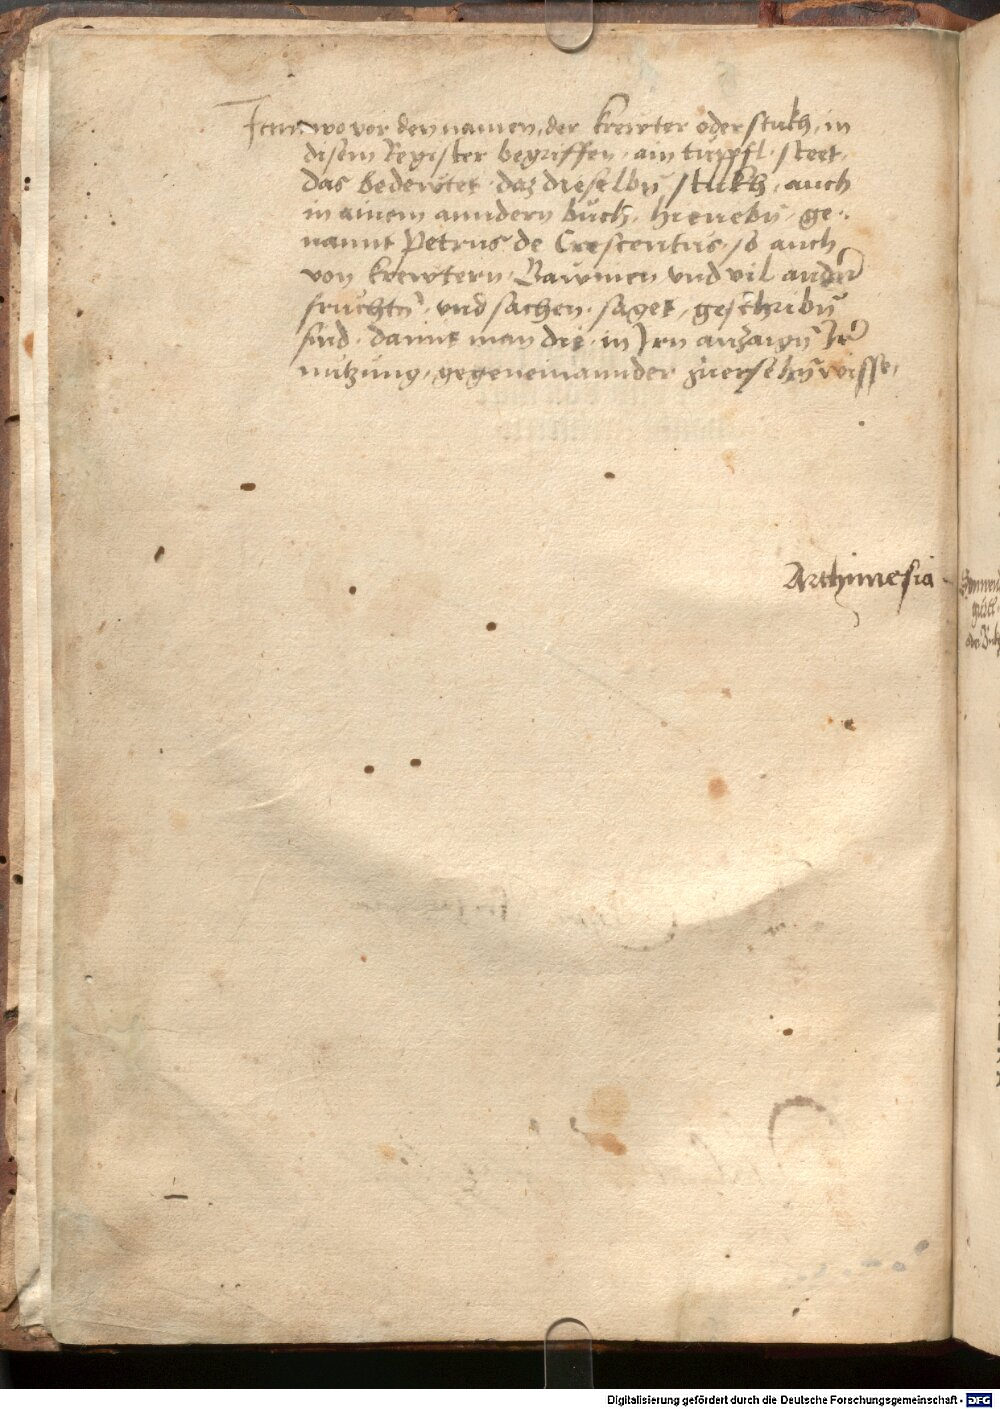 Item wo vor den namen, der krewter oder stukh, in
disem Register begriffen, ain tüpffl, steet,
das bedewtet, daz dieselbn̄ stukh, auch
in ainem anndern büch, hienebn̄, ge-
nannt Petrus de Crescentiis, so auch
von krewtern, Bawmen vnd vil andr̄
fruchtn̄, vnd sachen, saget, geschribn̄
sind, damit man die, in Jrn anzaign̄ Jr̄
nutzung, gegeneinannder zuersehn̄ wisse,
Arthimesia
Digitalisierung gefördert durch die Deutsche Forschungsgemeinschaft - DFG